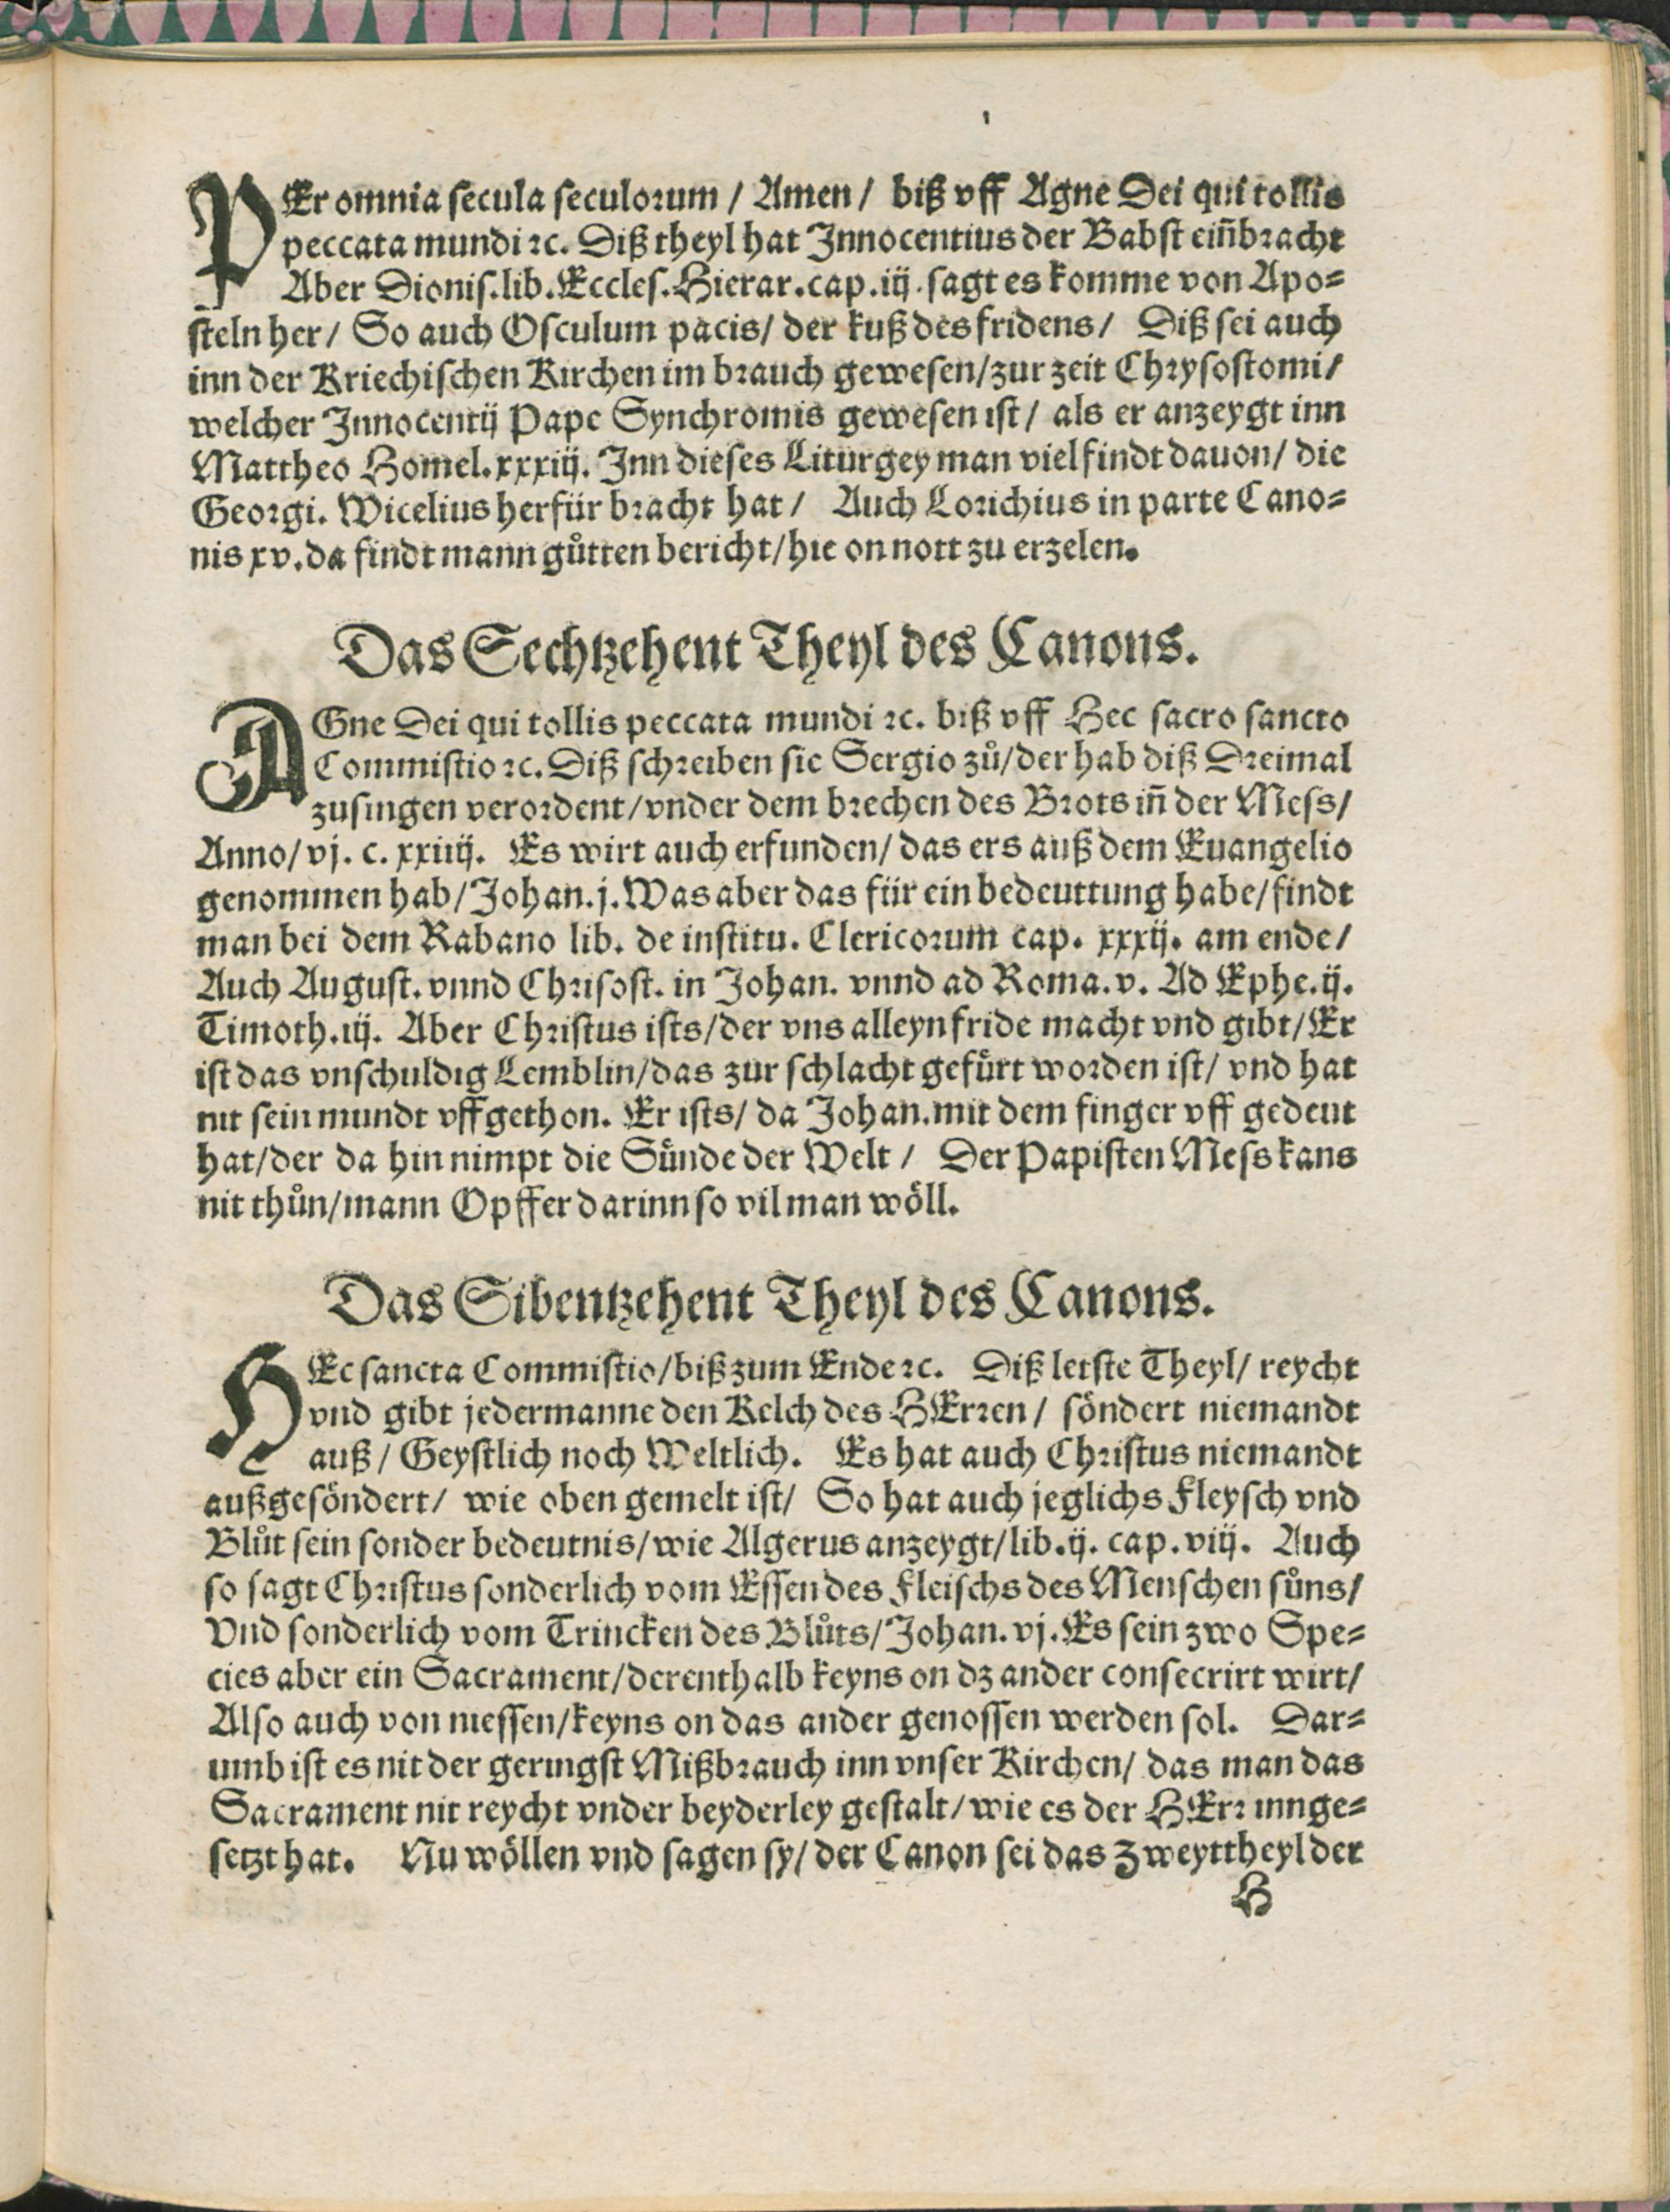 PEr omnia secula seculorum / Amen / biß vff Agne Dei qui tollis
peccata mundi ꝛc. Diß theyl hat Innocentius der Babst eiñbracht
Aber Dionis.lib.Eccles.Hierar.cap.iij. sagt es komme von Apo-
steln her/ So auch Osculum pacis/ der kuß des fridens/ Diß sei auch
inn der Kriechischen Kirchen im brauch gewesen/zur zeit Chrysostomi/
welcher Innocentij Pape Synchromis gewesen ist/ als er anzeygt inn
Mattheo Homel.xxxiij. Inn dieses Liturgey man viel findt dauon/ die
Georgi. Wicelius herfür bracht hat / Auch Lorichius in parte Cano-
nis xv.da findt mann gůtten bericht/hie on nott zu erzelen.
Das Sechtzehent Theyl des Canons.
AGne Dei qui tollis peccata mundi ꝛc. biß vff Hec sacro sancto
Commistio ꝛc. Diß schreiben sie Sergio zů/der hab diß Dreimal
zusingen verordent/vnder dem brechen des Brots iñ der Mess/
Anno/ vj. c. xxiiij. Es wirt auch erfunden/ das ers auß dem Euangelio
genommen hab/Johan.j.Was aber das für ein bedeuttung habe/findt
man bei dem Rabano lib. de institu. Clericorum cap. xxxij. am ende/
Auch August. vnnd Chrisost. in Johan. vnnd ad Roma.v. Ad Ephe.ij.
Timoth.iij. Aber Christus ists/der vns alleyn fride macht vnd gibt/Er
ist das vnschuldig Lemblin/das zur schlacht gefürt worden ist/ vnd hat
nit sein mundt vffgethon. Er ists/ da Johan.mit dem finger vff gedeut
hat/der da hin nimpt die Sünde der Welt / Der Papisten Mess kans
nit thůn/mann Opffer darinn so vil man wöll.
Das Sibentzehent Theyl des Canons.
HEc sancta Commistio/biß zum Ende ꝛc. Diß letste Theyl/ reycht
vnd gibt jedermanne den Kelch des HErren / söndert niemandt
auß / Geystlich noch Weltlich. Es hat auch Christus niemandt
außgesöndert/ wie oben gemelt ist/ So hat auch jeglichs Fleysch vnd
Blůt sein sonder bedeutnis/wie Algerus anzeygt/lib.ij. cap.viij. Auch
so sagt Christus sonderlich vom Essen des Fleischs des Menschen sůns/
Vnd sonderlich vom Trincken des Blůts/Johan.vj.Es sein zwo Spe-
cies aber ein Sacrament/derenthalb keyns on dz ander consecrirt wirt/
Also auch von niessen/keyns on das ander genossen werden sol. Dar-
umb ist es nit der geringst Mißbrauch inn vnser Kirchen/ das man das
Sacrament nit reycht vnder beyderley gestalt/wie es der HErr innge-
setzt hat. Nu wöllen vnd sagen sy/ der Canon sei das Zweyttheyl der
H